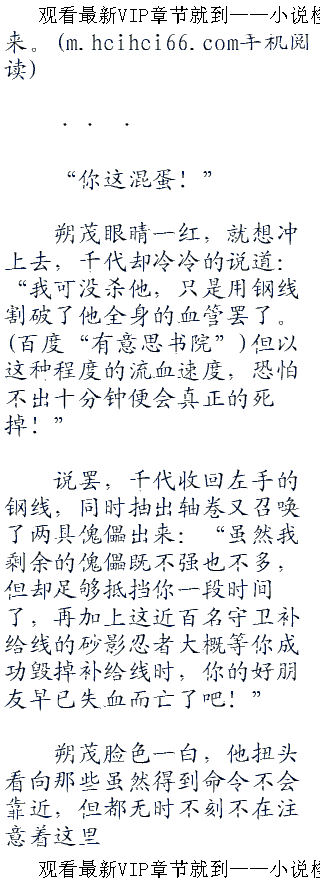 观看最新VIP章节就到——小说检
来。(m.hcihci66.com手机阅
读)
． ． ．
“你这混蛋！”
朔茂眼睛一红，就想冲
上去，千代却冷冷的说道：
“我可没杀他，只是用钢线
割破了他全身的血管罢了。
(百度“有意思书院”)但以
这种程度的流血速度，恐怕
不出十分钟便会真正的死
掉！”
说罢，千代收回左手的
钢线，同时抽出轴卷又召唤
了两具傀儡出来：“虽然我
剩余的傀儡既不强也不多，
但却足够抵挡你一段时间
了，再加上这近百名守卫补
给线的砂影忍者大概等你成
功毁掉补给线时，你的好朋
友早已失血而亡了吧！”
朔茂脸色一白，他扭头
看向那些虽然得到命令不会
靠近，但都无时不刻不在注
意着这里
观看最新VIP章节就到——小说检